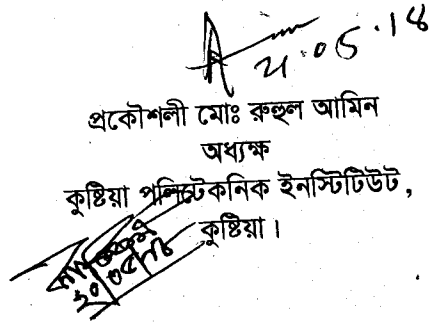 21.05.18
প্রকৌশলী মোঃ রুহুল আমিন
অধ্যক্ষ
কুষ্টিয়া পলিটেকনিক ইনস্টিটিউট,
কুষ্টিয়া।